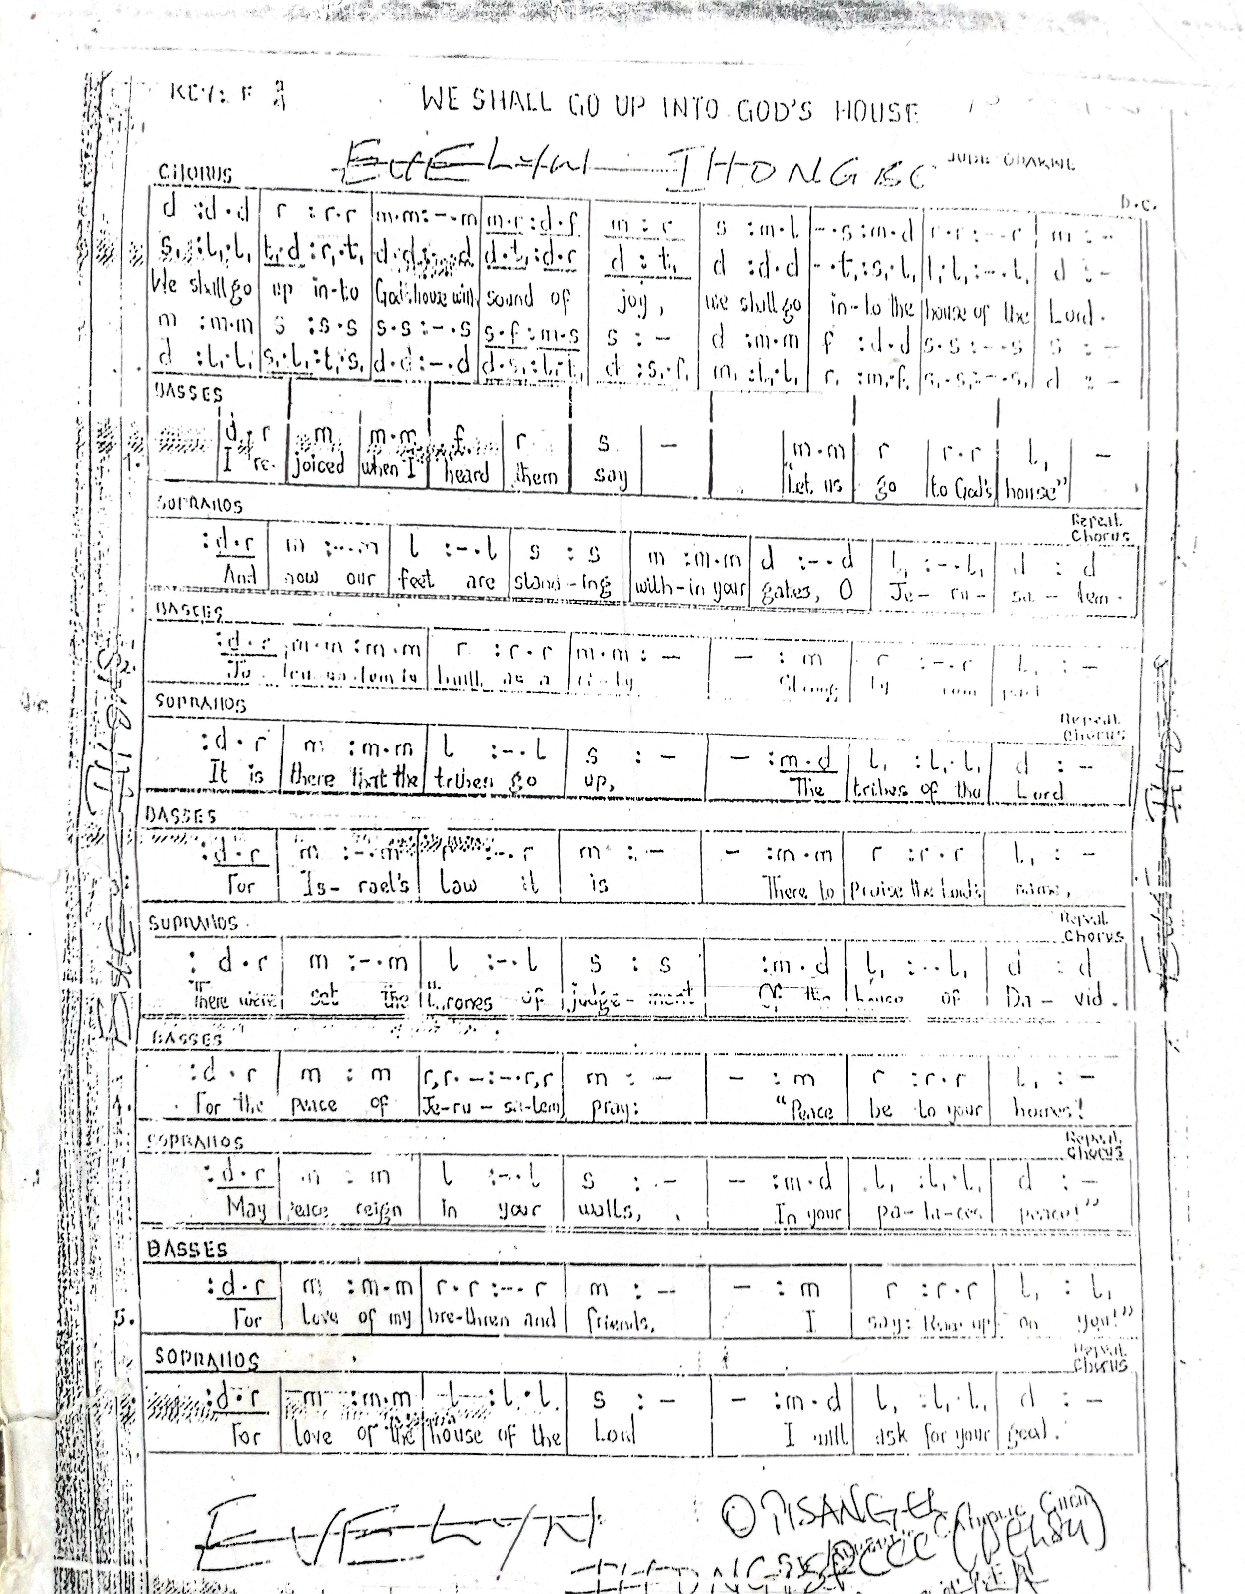 KEY: F 3/4
WE SHALL GO UP INTO GOD'S HOUSE
EVELYN IHONGBE
CHORUS
D.C.
d :d.d | r :r.r | m.m:-.m | m.r:d.f | m : r | s :m.l | -.s:m.d | r.r:-.r | m :-
s, :l,.l, | t,.d :r,.t, | d.d:-.d | d.t,:d.r | d : t, | d :d.d | -.t,:s,.l, | l,.l,:-.l, | d :-
We shall go up in-to God's house with sound of joy, we shall go in-to the house of the Lord.
m :m.m | s :s.s | s.s:-.s | s.f:m.s | s : - | d :m.m | f :d.d | s.s:-.s | s :-
d :l,.l, | s,.l,:t,.s, | d.d:-.d | d.s,:l,.t, | d :s,.f, | m, :l,.l, | r, :m,.f, | s,.s,:-.s, | d :-
BASSES
d.r | m | m.m | f | r | s | - | m.m | r | r.r | l, | -
1. I re- joiced when I heard them say "Let us go to God's house"
SOPRANOS
Repeat
Chorus
:d.r | m :-.m | l :-.l | s : s | m :m.m | d :-.d | l, :-.l, | d : d
And now our feet are stand-ing with-in your gates, O Je-ru- sa-lem.
BASSES
:d.r | m.m :m.m | r :r.r | m.m : - | - : m | r :-.r | l, : -
2. Je- ru-sa-lem is built as a ci-ty Strong ly com pact
SOPRANOS
Repeat
Chorus
:d.r | m :m.m | l :-.l | s : - | - :m.d | l, :l,.l, | d : -
It is there that the tribes go up, The tribes of the Lord
BASSES
:d.r | m :-.m | r :-.r | m : - | - :m.m | r :r.r | l, : -
3. For Is-rael's Law it is There to praise the Lord's name,
SOPRANOS
Repeat
Chorus
: d.r | m :-.m | l :-.l | s : s | :m.d | l, :-.l, | d : d
There were set the thrones of judge-ment Of the house of Da-vid.
BASSES
:d.r | m : m | r,r.-:-.r,r | m : - | - : m | r :r.r | l, : -
4. For the peace of Je-ru-sa-lem pray: "Peace be to your homes!
SOPRANOS
Repeat
Chorus
:d.r | m : m | l :-.l | s : - | - :m.d | l, :l,.l, | d : -
May peace reign In your walls, In your pa-la-ces peace!"
BASSES
:d.r | m :m.m | r.r:-.r | m : - | - : m | r :r.r | l, : l,
5. For love of my bre-thren and friends, I say: on you!"
SOPRANOS
Repeat
Chorus
:d.r | m :m.m | l :l.l. | s : - | - :m.d | l, :l,.l, | d : -
For love of the house of the Lord I will ask for your goal.
EVELYN